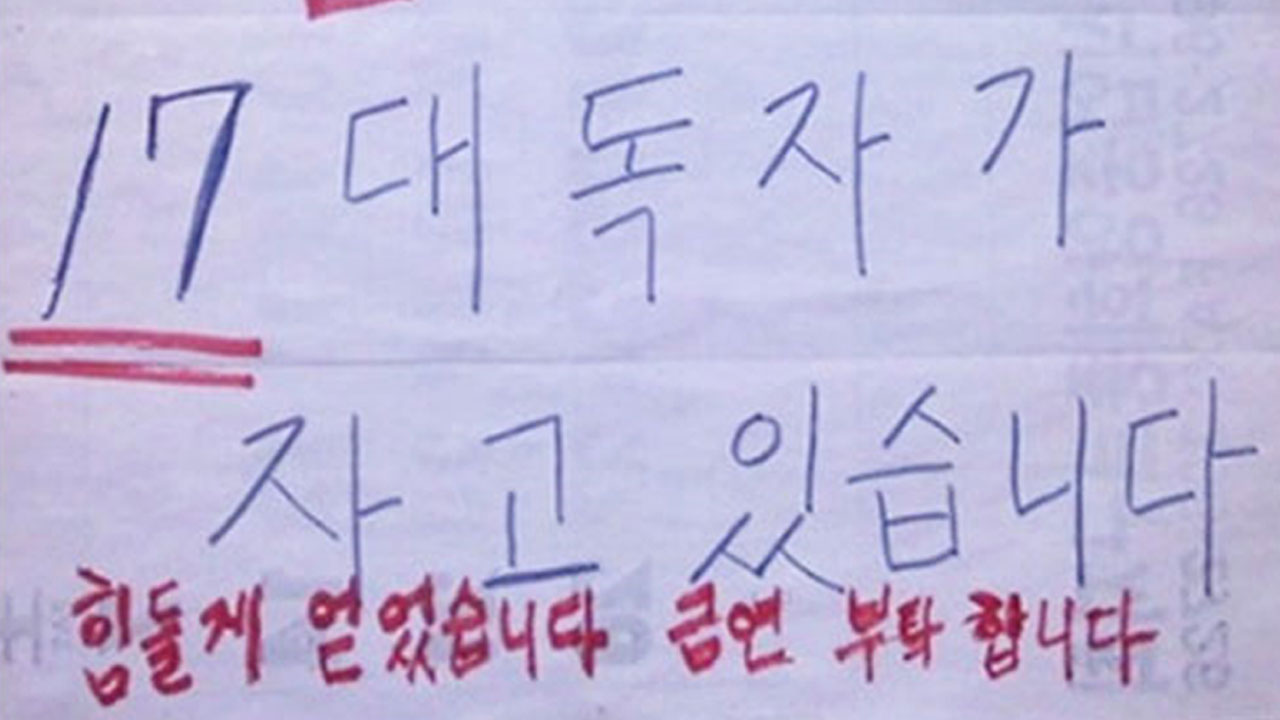 17대 독자가
자고 있습니다
힘들게 얻었습니다 금연 부탁 합니다